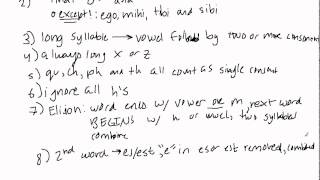 o except!: ego, mihi, tibi and sibi
3) long syllable → vowel followed by two or more consonants
4) always long x or z
5) qu, ch, ph and th all count as single consonant
6) ignore all h's
7) Elision: word ends w/ vowel or m, next word
BEGINS w/ h or vowel, two syllables
combine
8) 2nd word → es/est, "e" in es or est removed, combined